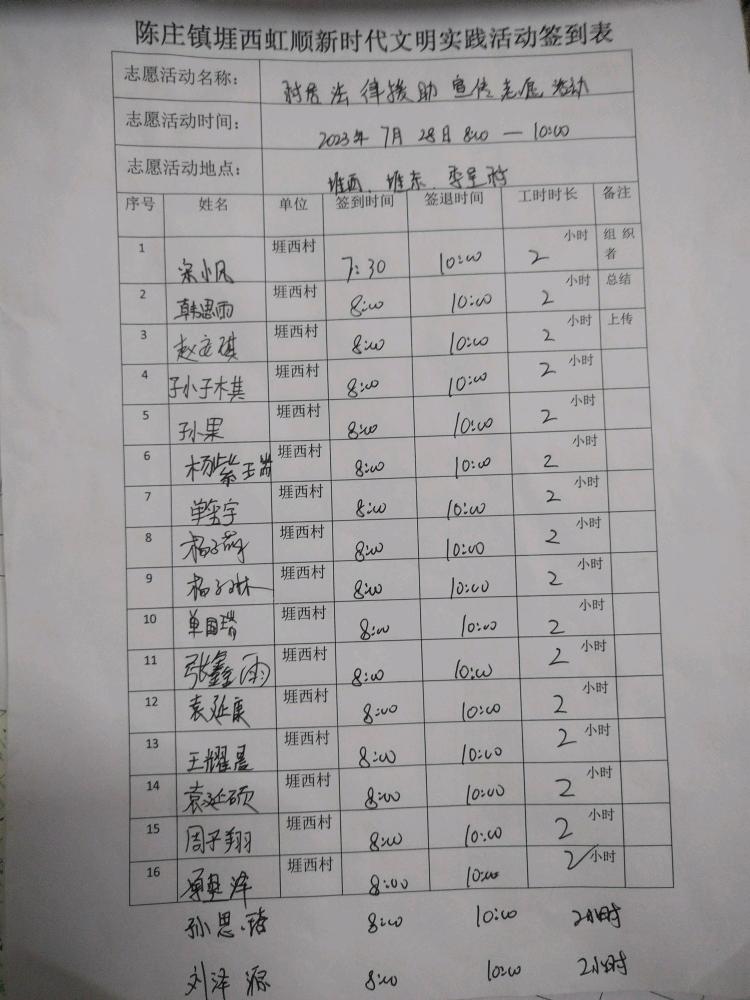 陈庄镇堐西虹顺新时代文明实践活动签到表
志愿活动名称： 村居法律援助宣传志愿活动
志愿活动时间： 2023年7月28日 8:00 — 10:00
志愿活动地点： 堐西、堐东、李呈村
序号 姓名 单位 签到时间 签退时间 工时时长 备注
1 宋小凤 堐西村 7:30 10:00 2小时 组织者
2 韩思雨 堐西村 8:00 10:00 2小时 总结
3 赵立琪 堐西村 8:00 10:00 2小时 上传
4 孙子木其 堐西村 8:00 10:00 2小时
5 孙果 堐西村 8:00 10:00 2小时
6 杨紫 堐西村 8:00 10:00 2
7 单宇 堐西村 8:00 10:00 2小时
8 杨子 堐西村 8:00 10:00 2小时
9 杨子琳 堐西村 8:00 10:00 2小时
10 单国瑞 堐西村 8:00 10:00 2小时
11 张鑫雨 堐西村 8:00 10:00 2小时
12 袁延康 堐西村 8:00 10:00 2小时
13 王耀晨 堐西村 8:00 10:00 2小时
14 袁延硕 堐西村 8:00 10:00 2小时
15 周子翔 堐西村 8:00 10:00 2小时
16 泽 堐西村 8:00 10:00 2小时
孙思琦 8:00 10:00 2小时
刘泽源 8:00 10:00 2小时